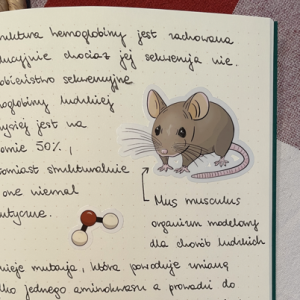 ruktura hemoglobiny jest zachowana
ucyjnie chociaż jej sekwencja nie.
obieństwo sekwencyjne
oglobiny ludzkiej
ysiej jest na
omie 50%,
omiast strukturalnie
one niemal
tyczne.
Mus musculus
organizm modelowy
dla chorób ludzkich
nieje mutacja, która powoduje zmianę
lko jednego aminokwasu a prowadzi do